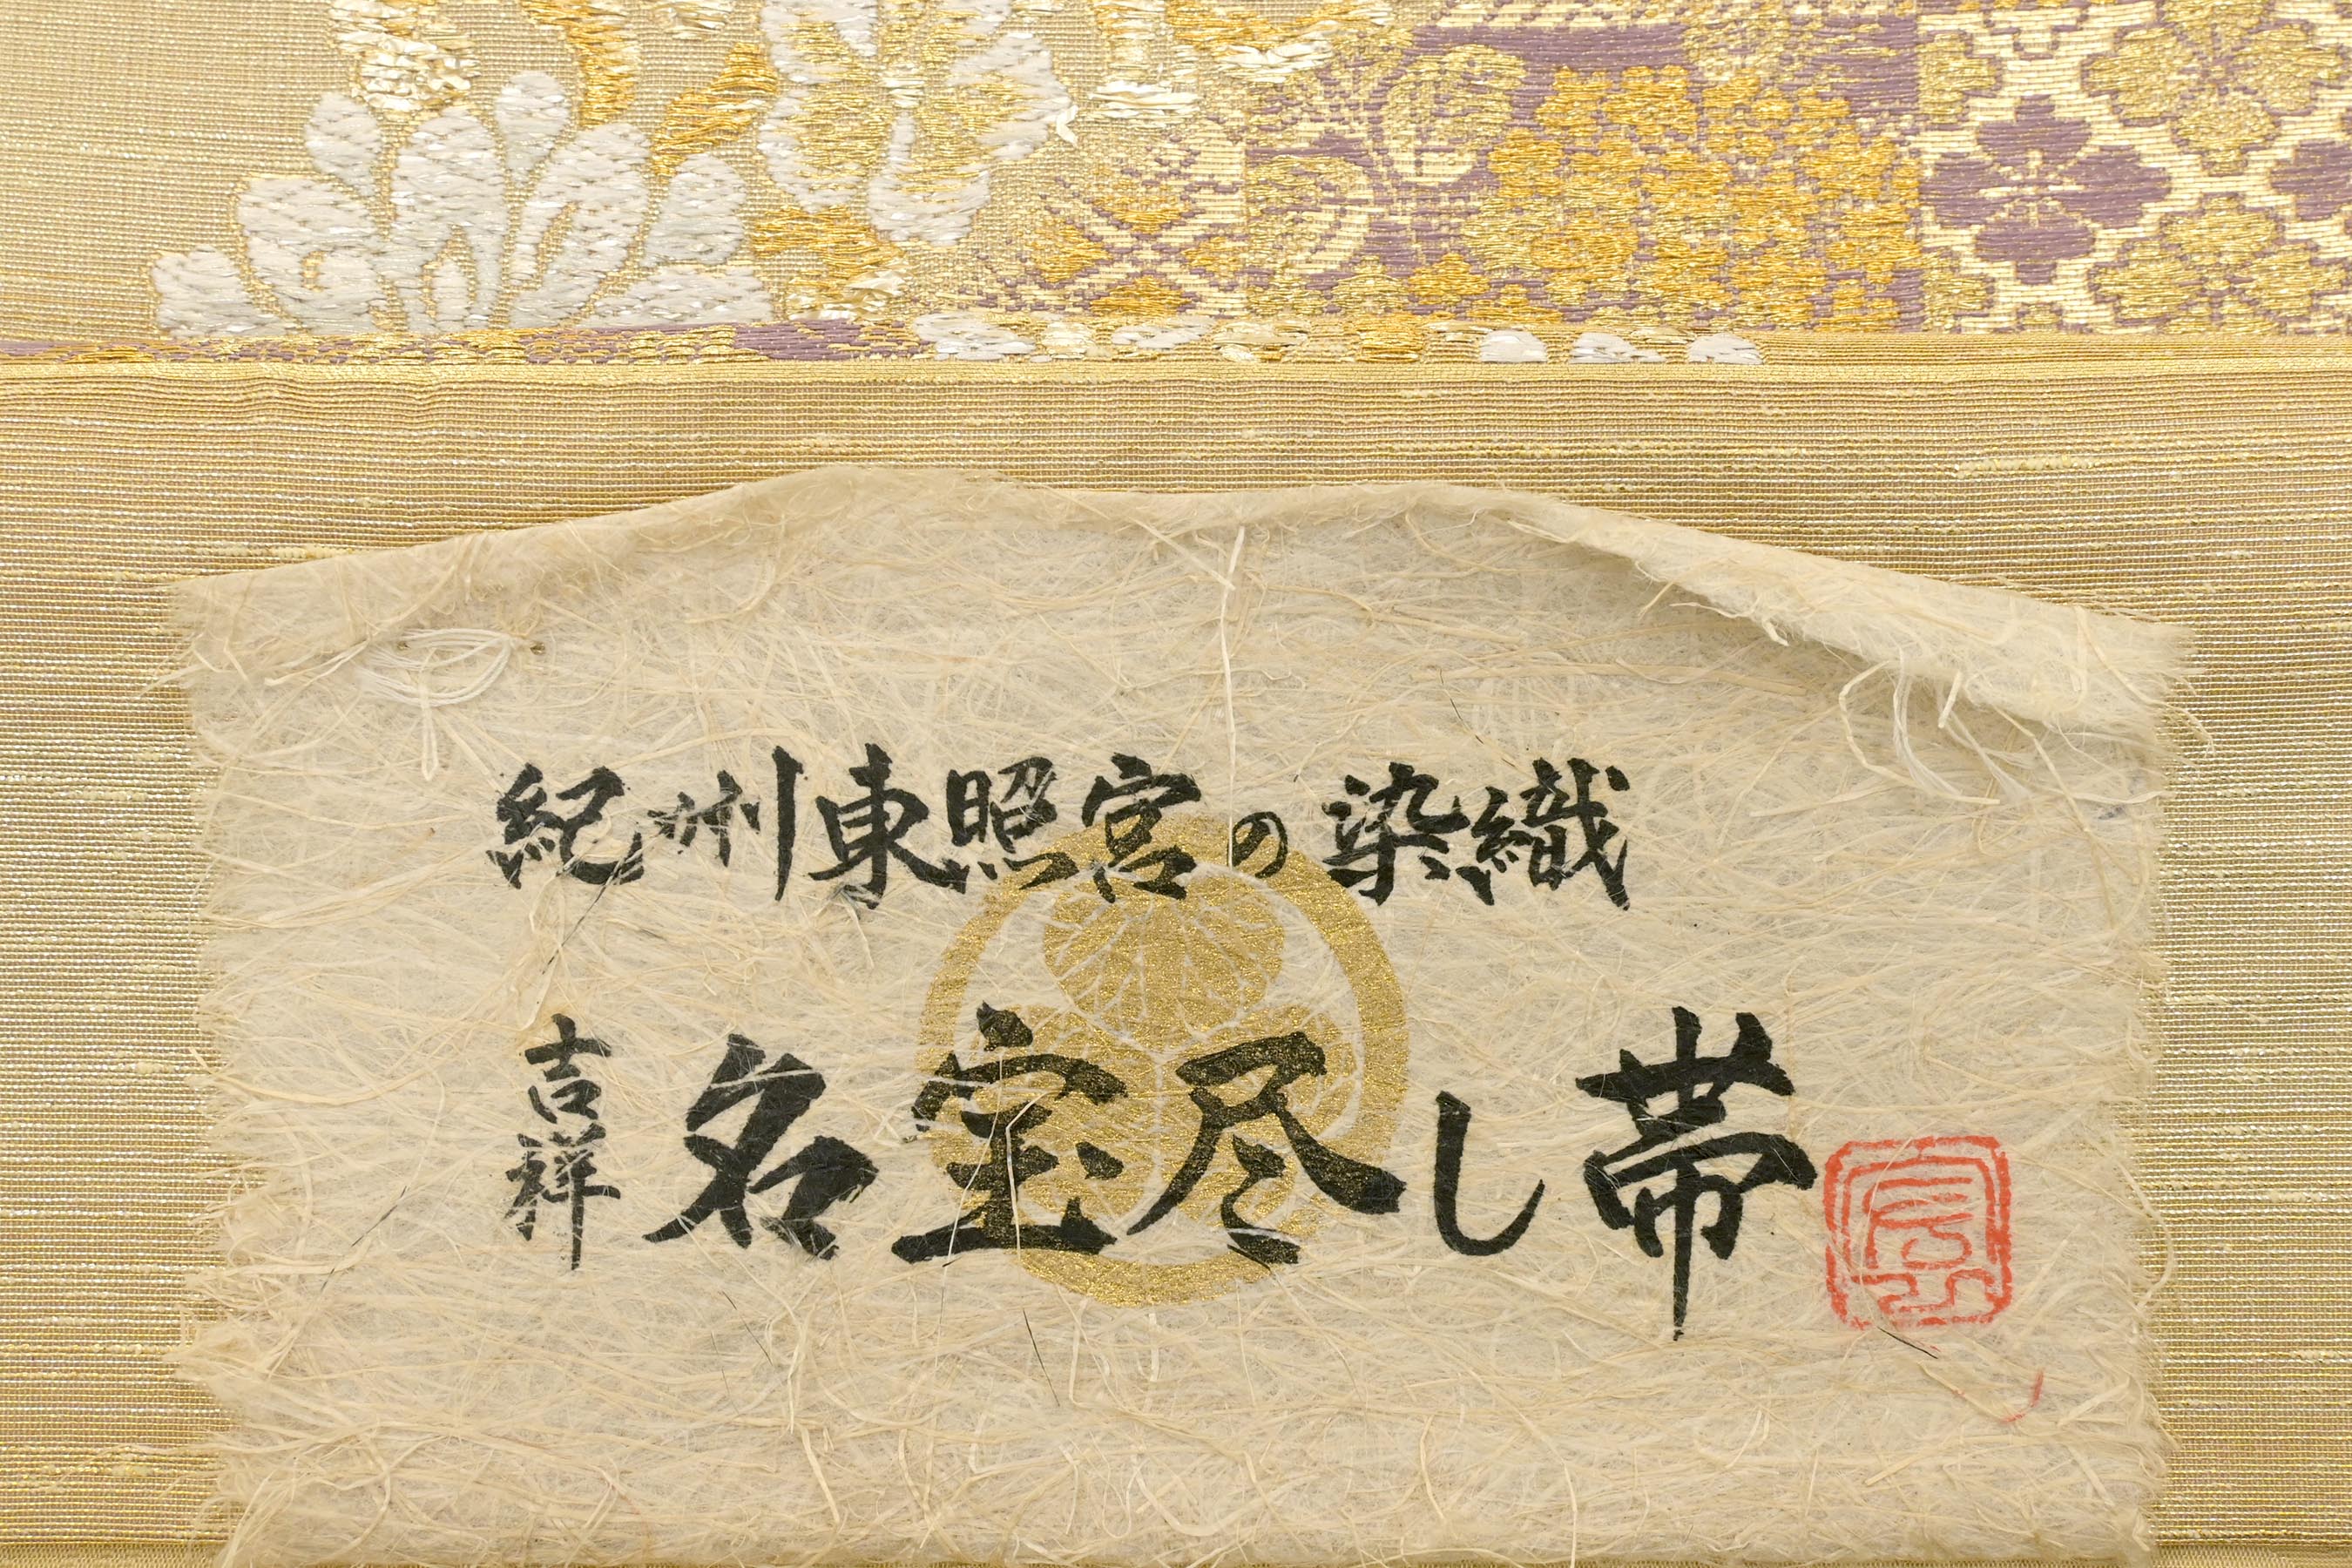 紀州東照宮の染織
吉祥名宝尽し帯